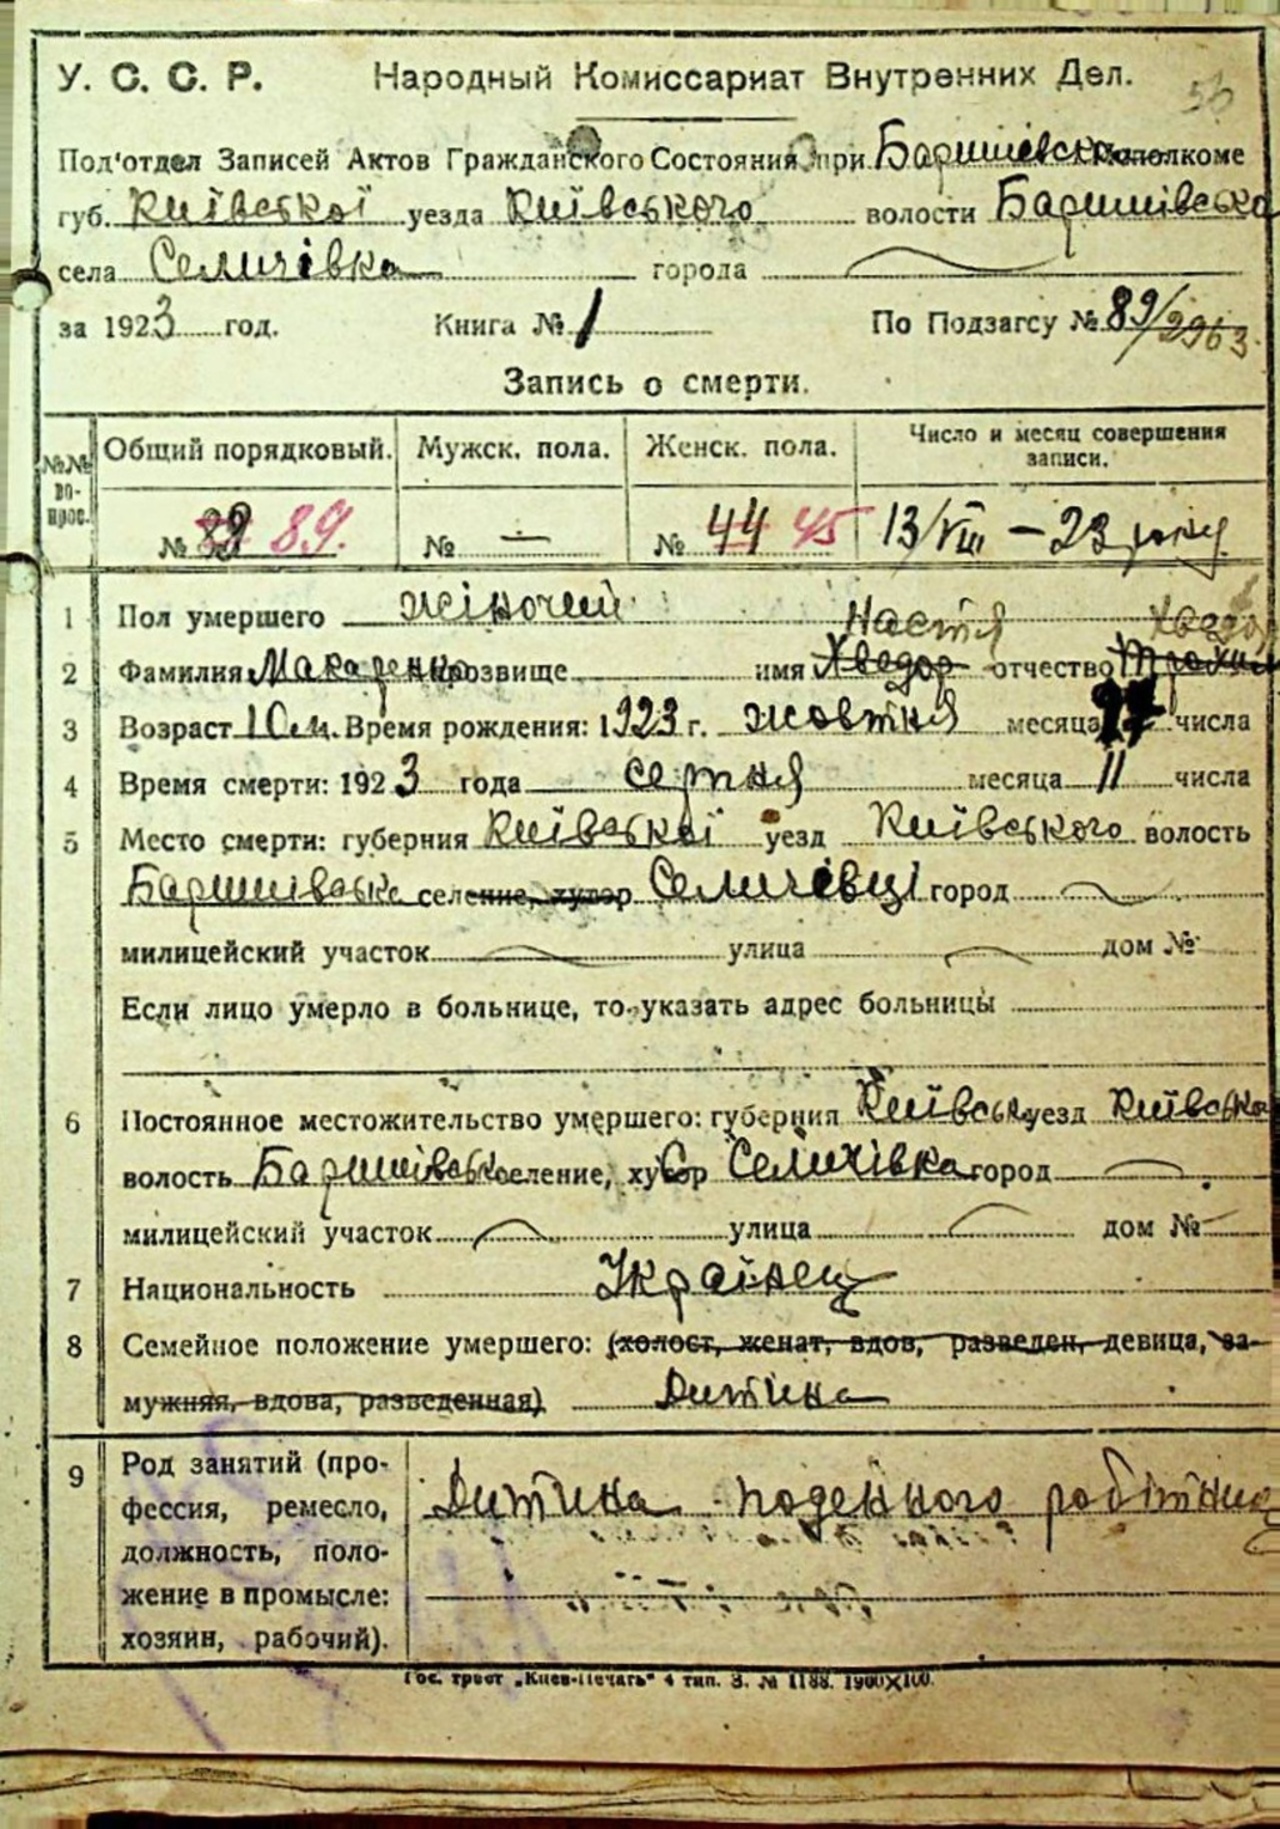 56
У. С. С. Р. Народный Комиссариат Внутренних Дел.
Под'отдел Записей Актов Гражданского Состояния при Баришівськ исполкоме
губ. Київської уезда Київського волости Баришівська
села Селичівка города
за 1923 год. Книга № 1 По Подзагсу № 89/2963
Запись о смерти.
№№ вопрос. Общий порядковый. Мужск. пола. Женск. пола. Число и месяц совершения записи.
№ 89. № — № 44 45 13/VIII – 23 року
1 Пол умершего жіночий
Настя Хведор
2 Фамилия Макаренко прозвище имя Хведор отчество
3 Возраст 10 м. Время рождения: 1923 г. жовтня месяца числа
4 Время смерти: 1923 года серпня месяца 11 числа
5 Место смерти: губерния Київської уезд Київського волость
Баришівська селение, хутор Селичівці город
милицейский участок улица дом №
Если лицо умерло в больнице, то указать адрес больницы
6 Постоянное местожительство умершего: губерния Київськ уезд Київсько
волость Баришівськ селение, хутор Селичівка город
милицейский участок улица дом № —
7 Национальность Українец
8 Семейное положение умершего: (холост, женат, вдов, разведен, девица, за-
мужняя, вдова, разведенная) Дитина
9 Род занятий (про- Дитина поденного робітника
фессия, ремесло,
должность, поло-
жение в промысле:
хозяин, рабочий).
Гос. трест „Киев-Печать" 4 тип. З. № 1188. 1900×100.